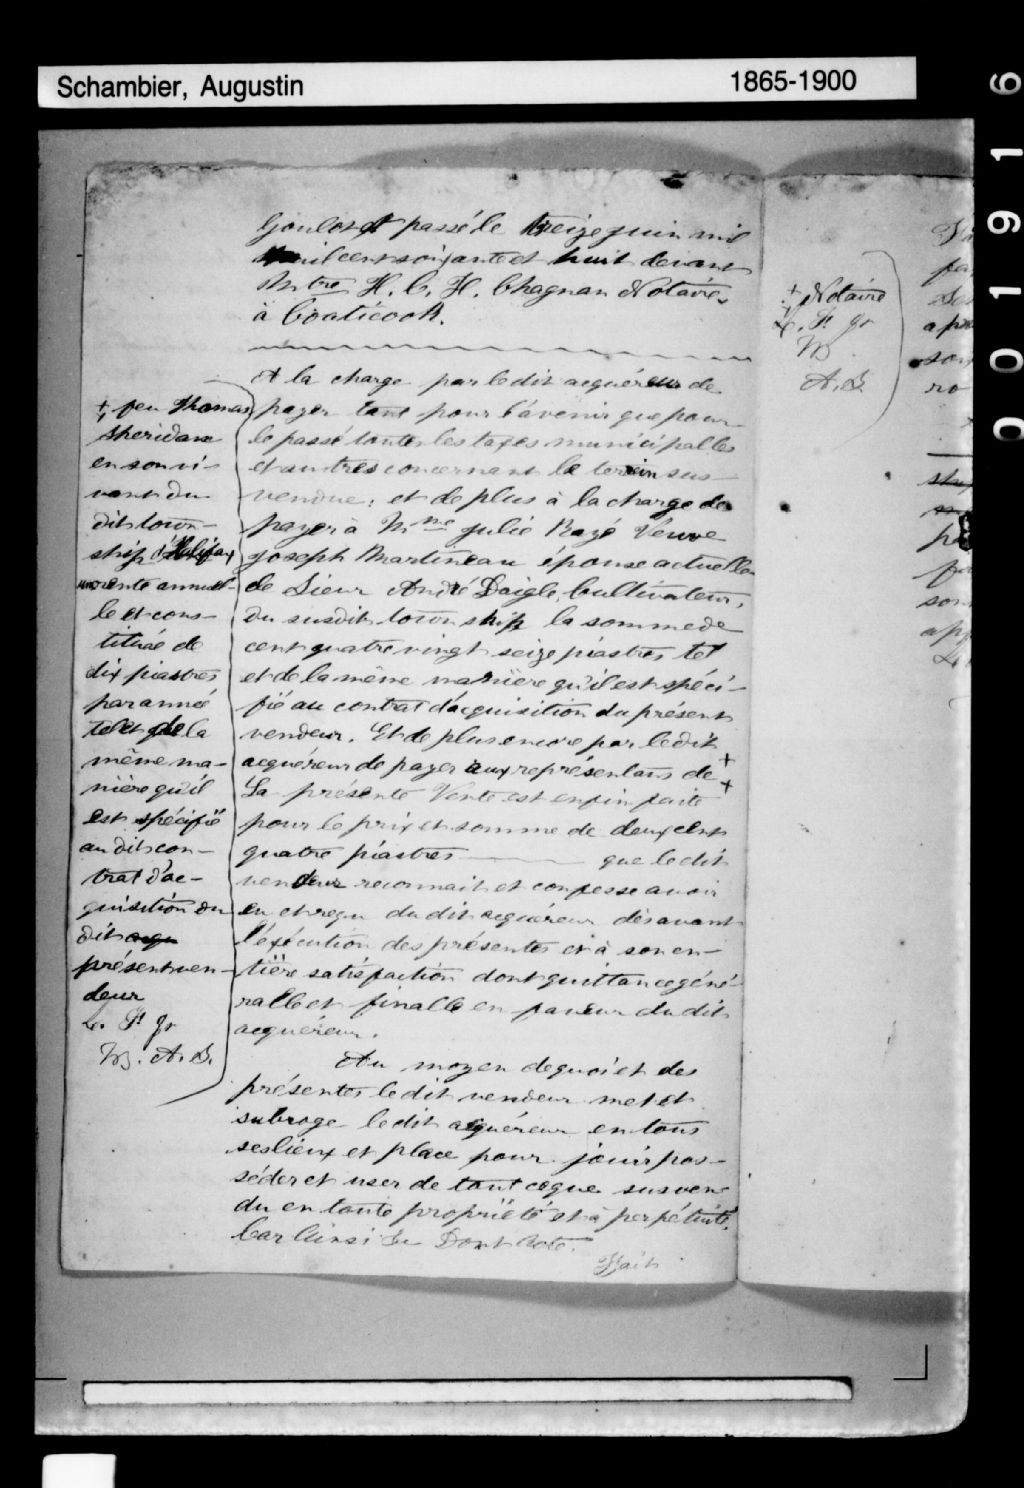 Schambier, Augustin
1865-1900
001916
Goulos et passé le treize juin mil
huit cent soixante et huit devant
Mtre H. C. H. Chagnan Notaire
à Coaticook.
A la charge par le dit acquéreur de
payer tant pour l'avenir que pour
le passé toutes les taxes municipalles
et autres concernant le terein sus-
vendue; et de plus à la charge de
payer à Mme Julie Razé Veuve
Joseph Martineau épouse actuelle
de Sieur André Daigle, Cultivateur,
du susdit township la somme de
cent quatre vingt seize piastres tel
et de la même manière qu'il est spéci-
fié au contrat d'acquisition du présent
vendeur. Et de plus encore par le dit
acquéreur de payer aux représentans de +
La présente Vente est enfin faite
pour le prix et somme de deux cent
quatre piastres ——— que le dit
vendeur reconnait et confesse avoir
eu et reçu du dit acquéreur dès avant
l'exécution des présentes et à son en-
tière satisfaction dont quittance géné-
ralle et finalle en faveur du dit
acquéreur.
Au moyen de quoi et des
présentes le dit vendeur met et
subroge le dit acquéreur en tous
ses lieux et place pour jouir pos-
séder et user de tout ce que sus ven-
du en toute propriété et à perpétuité.
Car Ainsi &c Dont Acte.
Fait
+ feu Thomas
Sheridan
en son vi-
vant du
dit town-
ship d'Halifax
une rente annuel-
le et cons-
tituée de
dix piastres
par année
tel et de la
même ma-
nière qu'il
est spécifié
au dit con-
trat d'ac-
quisition du
dit acqu
présent ven-
deur
L. St Jr
A. S.
+ Notaire
L. St Jr
A. S.